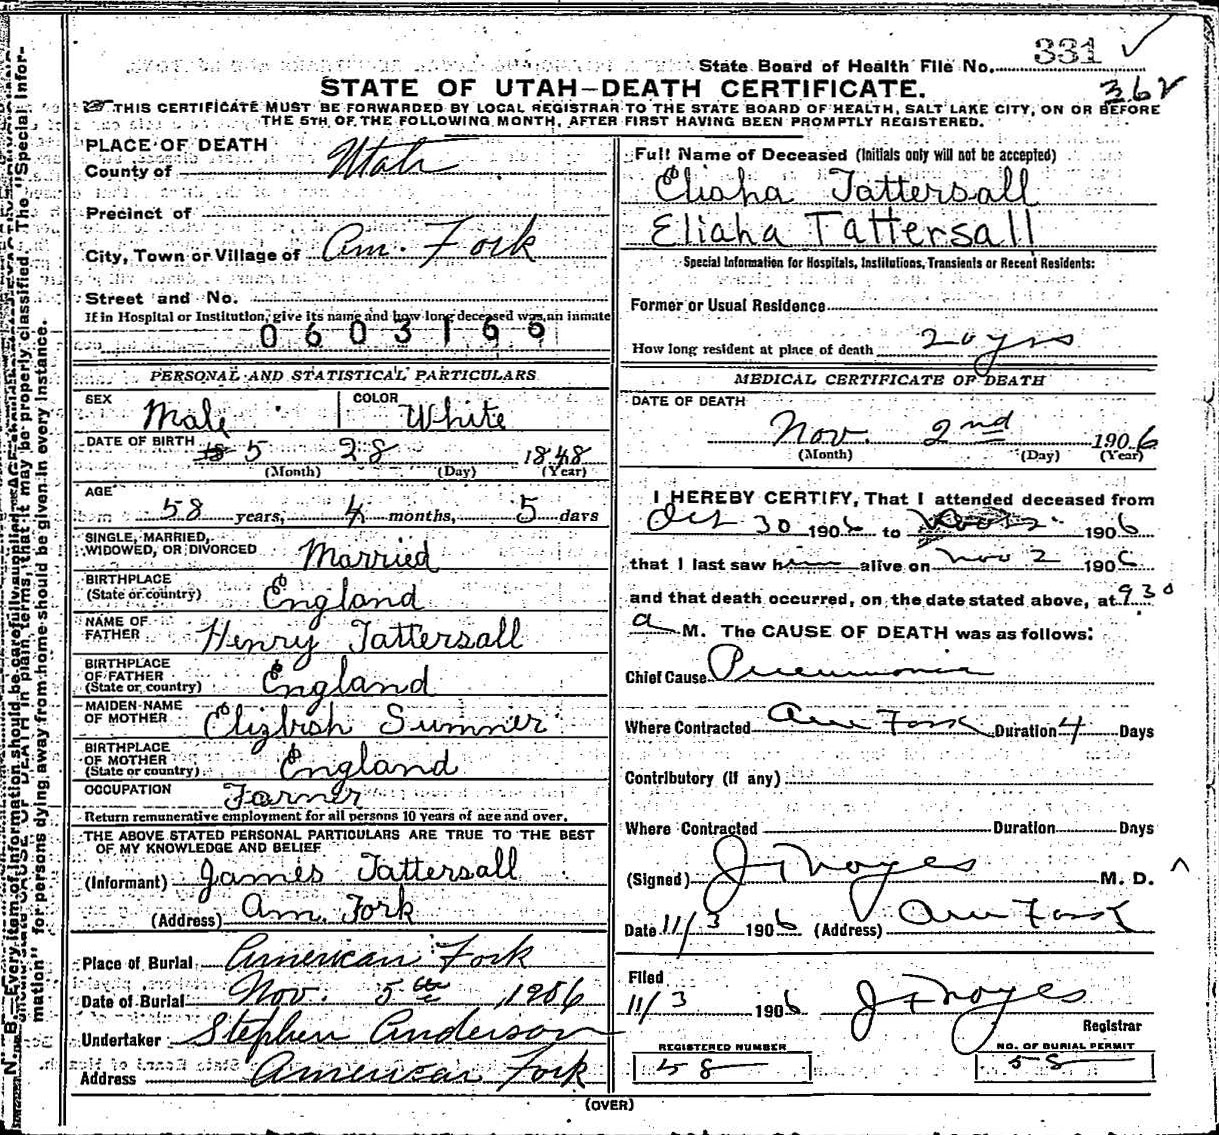 State Board of Health File No. 331
362
STATE OF UTAH—DEATH CERTIFICATE.
THIS CERTIFICATE MUST BE FORWARDED BY LOCAL REGISTRAR TO THE STATE BOARD OF HEALTH, SALT LAKE CITY, ON OR BEFORE
THE 5TH OF THE FOLLOWING MONTH, AFTER FIRST HAVING BEEN PROMPTLY REGISTERED.
PLACE OF DEATH
County of Utah
Precinct of
City, Town or Village of Am. Fork
Street and No.
If in Hospital or Institution, give its name and how long deceased was an inmate
0603166
PERSONAL AND STATISTICAL PARTICULARS
SEX Male COLOR White
DATE OF BIRTH 5 28 1848
(Month) (Day) (Year)
AGE
58 years, 4 months, 5 days
SINGLE, MARRIED,
WIDOWED, OR DIVORCED Married
BIRTHPLACE
(State or country) England
NAME OF
FATHER Henry Tattersall
BIRTHPLACE
OF FATHER
(State or country) England
MAIDEN NAME
OF MOTHER Elizbish Summer
BIRTHPLACE
OF MOTHER
(State or country) England
OCCUPATION Farmer
Return remunerative employment for all persons 10 years of age and over.
THE ABOVE STATED PERSONAL PARTICULARS ARE TRUE TO THE BEST
OF MY KNOWLEDGE AND BELIEF
(Informant) James Tattersall
(Address) Am. Fork
Place of Burial American Fork
Date of Burial Nov. 5th, 1906
Undertaker Stephen Anderson
Address American Fork
Full Name of Deceased (Initials only will not be accepted)
Eliaha Tattersall
Eliaha Tattersall
Special Information for Hospitals, Institutions, Transients or Recent Residents:
Former or Usual Residence
How long resident at place of death 20 yrs
MEDICAL CERTIFICATE OF DEATH
DATE OF DEATH
Nov. 2nd 1906
(Month) (Day) (Year)
I HEREBY CERTIFY, That I attended deceased from
Oct 30 1906 to 1906
that I last saw h alive on Nov 2 1906
and that death occurred, on the date stated above, at 9 30
a M. The CAUSE OF DEATH was as follows:
Chief Cause Pneumonia
Where Contracted Am Fork Duration 4 Days
Contributory (if any)
Where Contracted Duration Days
(Signed) J F Noyes M. D.
Date 11/3 1906 (Address) Am Fork
Filed
11/3 1906 J F Noyes
Registrar
REGISTERED NUMBER
58
NO. OF BURIAL PERMIT
58
(OVER)
N. B.—Every item of information should be carefully supplied. CAUSE OF DEATH in plain terms, that it may be properly classified. The "Special Infor-
mation" for persons dying away from home should be given in every instance.